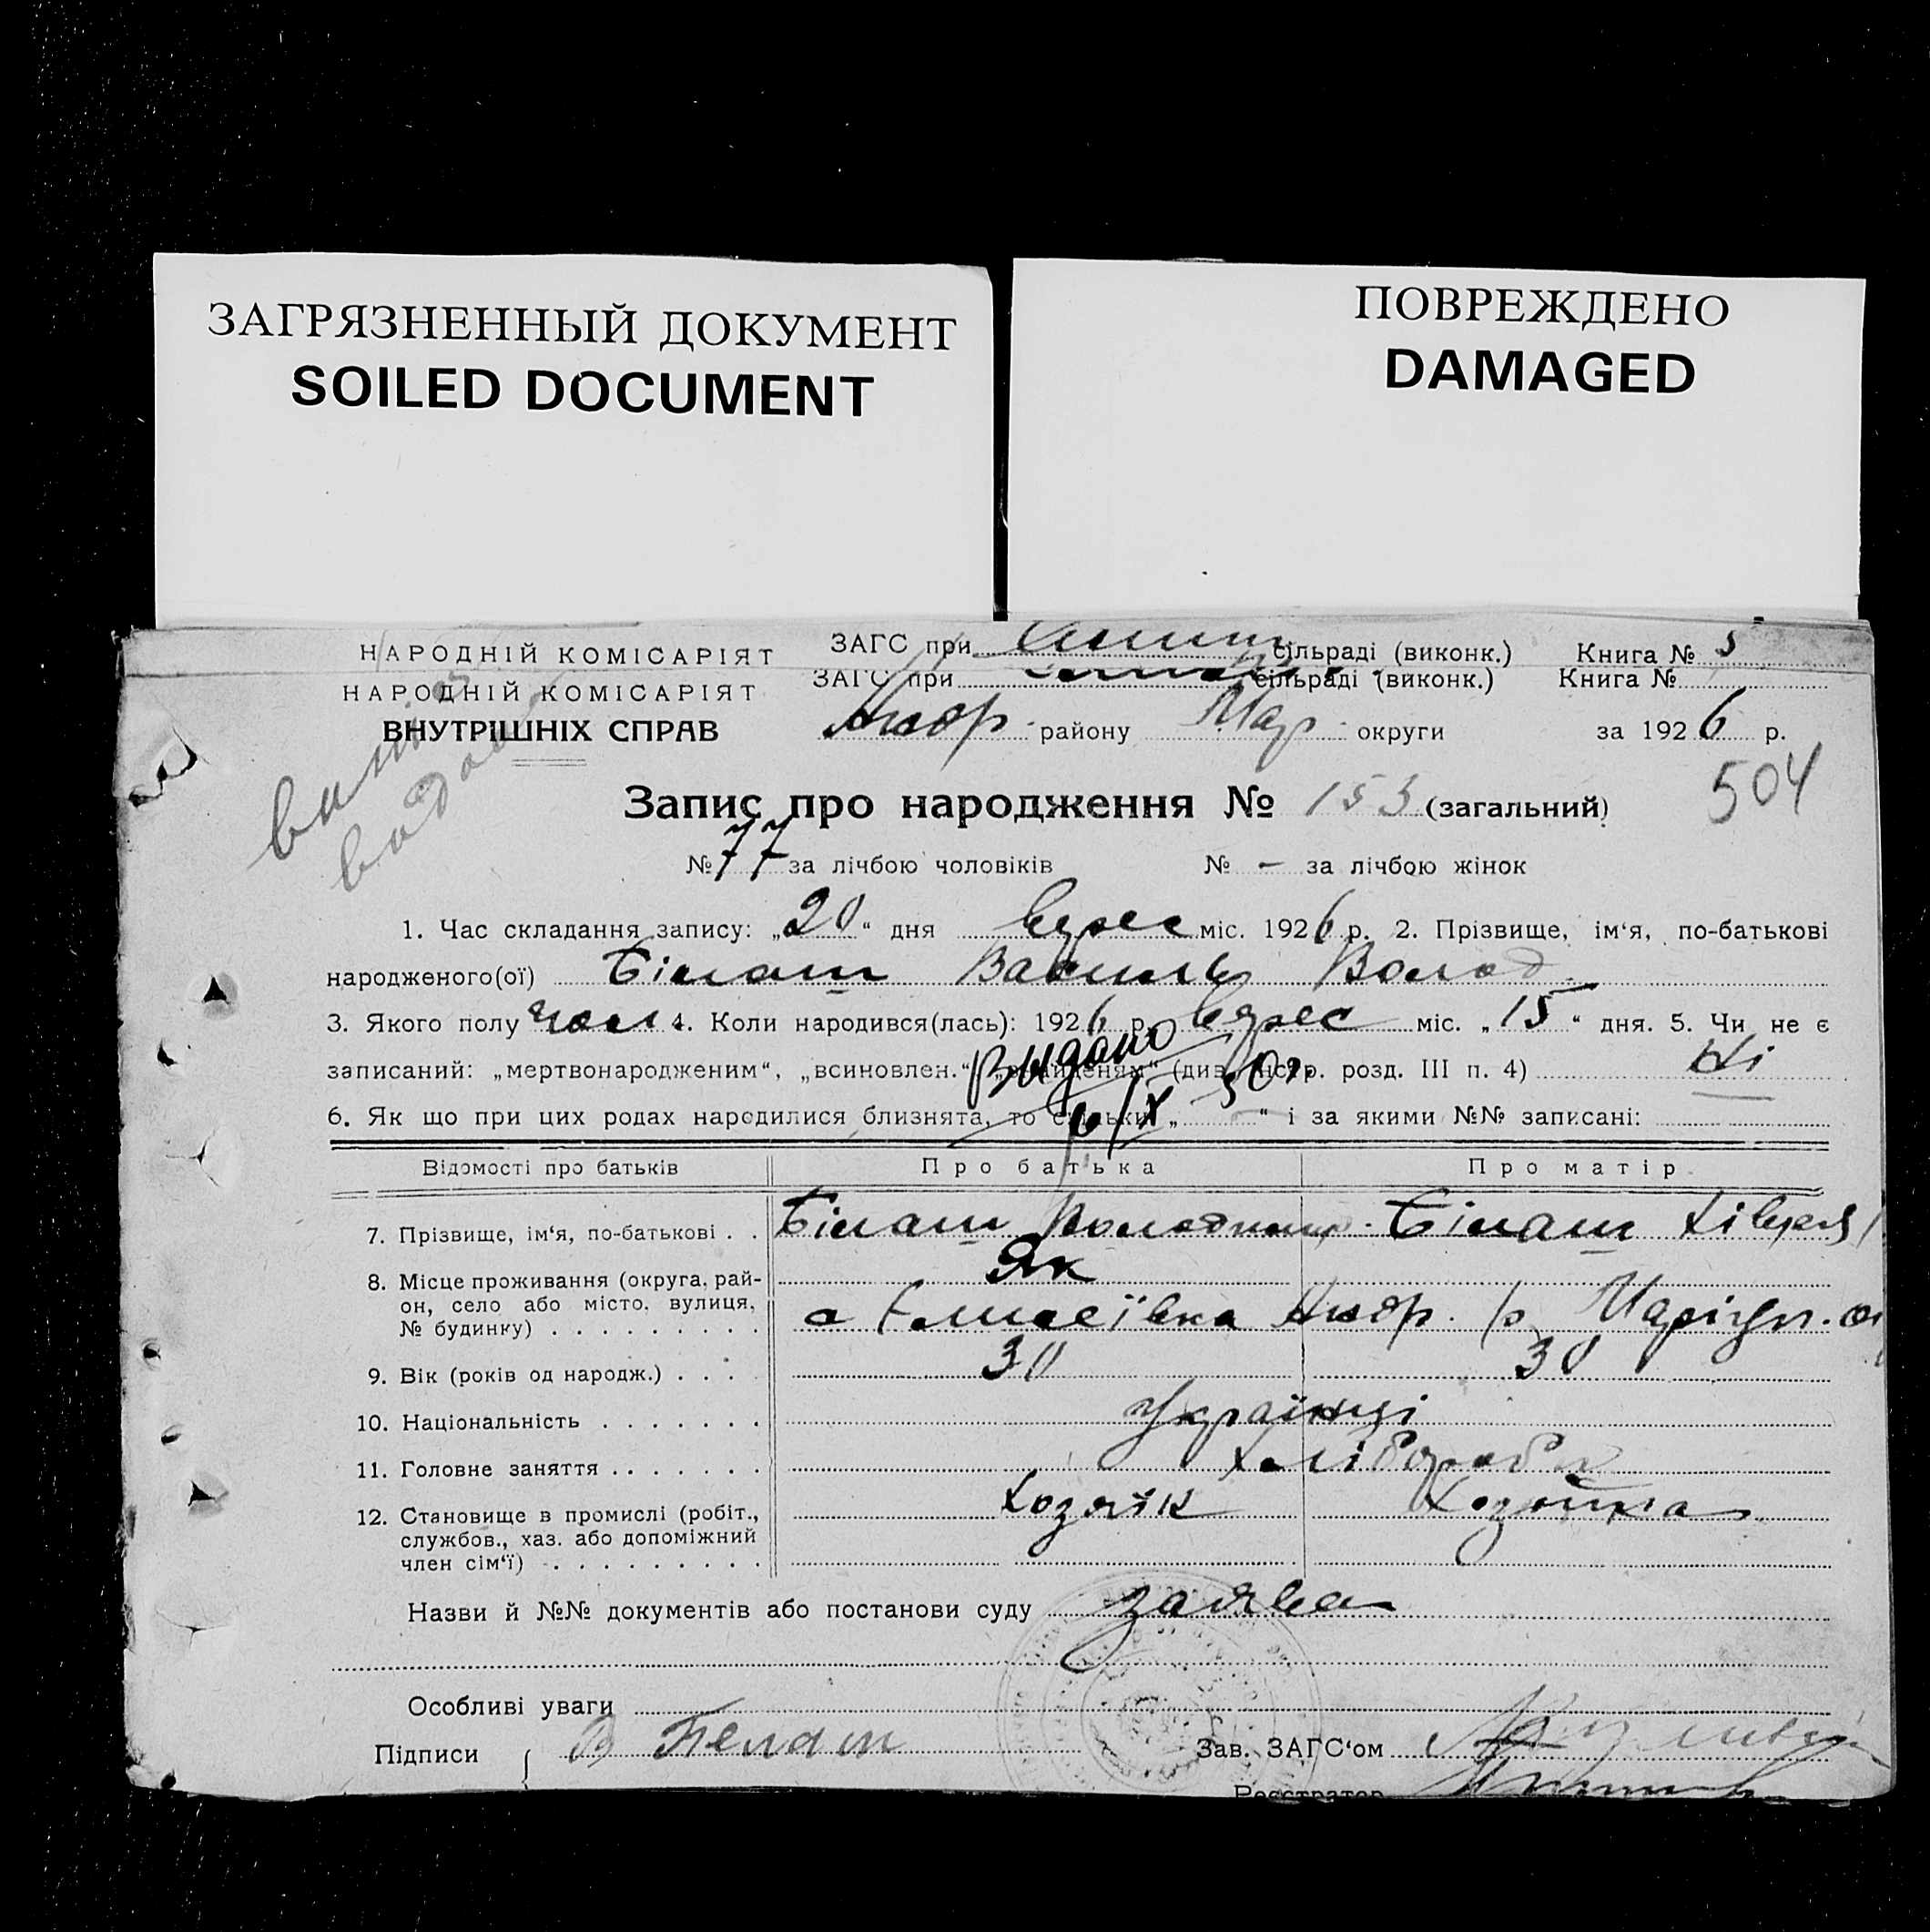 ЗАГРЯЗНЕННЫЙ ДОКУМЕНТ
SOILED DOCUMENT
ПОВРЕЖДЕНО
DAMAGED
НАРОДНІЙ КОМІСАРІЯТ ЗАГС при сільраді (виконк.) Книга №
НАРОДНІЙ КОМІСАРІЯТ ЗАГС при сільраді (виконк.) Книга №
ВНУТРІШНІХ СПРАВ району Мар округи за 1926 р.
504
Запис про народження № 153 (загальний)
№ 77 за лічбою чоловіків № — за лічбою жінок
1. Час складання запису: „20“ дня верес міс. 1926 р. 2. Прізвище, ім‘я, по-батькові
народженого(ої) Білаш Василь Волод.
3. Якого полу чол 4. Коли народився(лась): 1926 р. верес міс. „15“ дня. 5. Чи не є
записаний: „мертвонародженим“, „всиновлен.“, (див. інстр. розд. III п. 4) Ні
Видано
6. Як що при цих родах народилися близнята, то скільки „ “ і за якими №№ записані:
Відомості про батьків Про батька Про матір
7. Прізвище, ім‘я, по-батькові . . Білаш Білаш
8. Місце проживання (округа, рай-
он, село або місто, вулиця,
№ будинку) . . . . . . . . . Маріуп.
9. Вік (років од народж.) . . . . 30 30
10. Національність . . . . . . . Українці
11. Головне заняття . . . . . . . Хлібороби
12. Становище в промислі (робіт., Хозяїн Хозяйка
службов., хаз. або допоміжний
член сім‘ї) . . . . . . . . .
Назви й №№ документів або постанови суду заява
Особливі уваги
Підписи В Белаш Зав. ЗАГС‘ом
Реєстратор